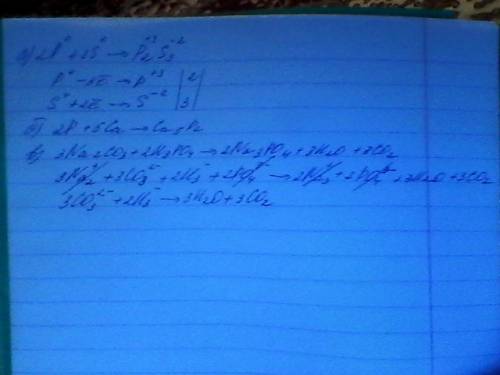 а) 2P⁰ + 3S⁰ → P₂⁺³S₃⁻²
P⁰ - 3ē → P⁺³ | 2
S⁰ + 2ē → S⁻² | 3
б) 2P + 3Ca → Ca₃P₂
в) 3Na₂CO₃ + 2H₃PO₄ → 2Na₃PO₄ + 3H₂O + 3CO₂
+ 3CO₃²⁻ + → + 3H₂O + 3CO₂
3CO₃²⁻ + → 3H₂O + 3CO₂